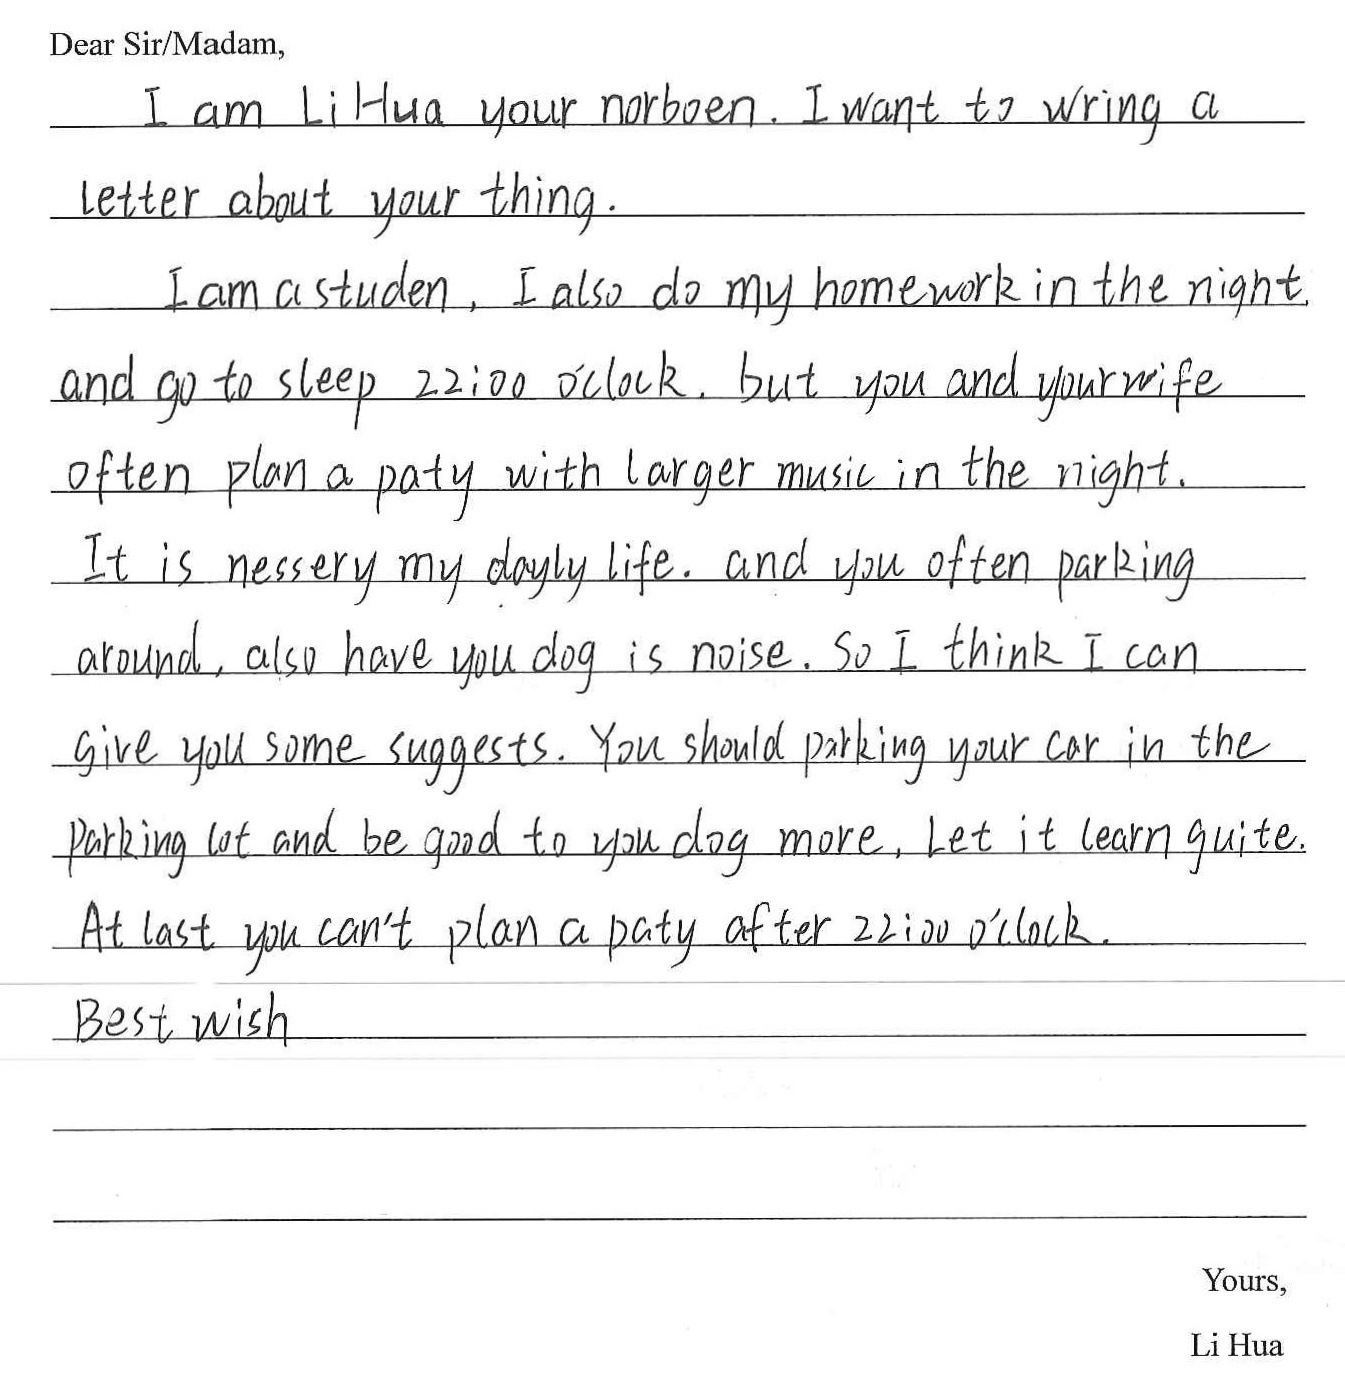 Dear Sir/Madam,
I am Li Hua your norboen. I want to wring a
letter about your thing.
I am a studen, I also do my homework in the night.
and go to sleep 22:00 o'clock. but you and your wife
often plan a paty with larger music in the night.
It is nessery my dayly life. and you often parking
around, also have you dog is noise. So I think I can
give you some suggests. You should parking your car in the
parking lot and be good to you dog more, Let it learn quite.
At last you can't plan a paty after 22:00 o'clock.
Best wish
Yours,
Li Hua